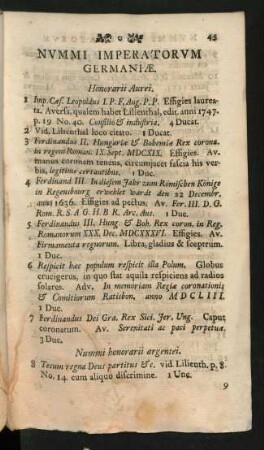 43
NVMMI IMPERATORVM
GERMANIÆ.
Honorarii Aurei.
1 Imp. Cæs. Leopoldus I. P. F. Aug. P. P. Effigies laurea-
ta. Avers. qualem habet Lilienthal, edit. anni 1747.
p. 19 No. 40. Consilio & Industria. 4 Ducat.
2 Vid. Lilienthal loco citato. 1 Ducat.
3 Ferdinandus II. Hungariæ & Bohemiæ Rex corona.
in regem Roman. IX. Sept. MDCXIX. Effigies. Av.
manus coronam tenens, circumjacet fascia his ver-
bis, legitime certantibus. 1 Duc.
4 Ferdinand III. In diesem Jahr zum Römischen Könige
in Regensburg erwehlet ward den 22 Decembr.
anni 1636. Effigies ad pectus. Av. Fer. III. D. G.
Rom. R. S. A G. H. B R. Arc. Aus. 1 Duc.
5 Ferdinandus III. Hung. & Boh. Rex coron. in Reg.
Romanorum XXX. Dec. MDCXXXVI. Effigies. Av.
Firmamenta regnorum. Libra, gladius & sceptrum.
1 Duc.
6 Respicit hec populum respicit illa Polum. Globus
crucigerus, in quo stat aquila respiciens ad radios
solares. Adv. In memoriam Regiæ coronationis
& Comitiorum Ratisbon. anno MDCLIII.
1 Duc.
7 Ferdinandus Dei Gra. Rex Sici. Jer. Ung. Caput
coronatum. Av. Serenitati ac paci perpetuæ
3 Duc.
Nummi honorarii argentei.
8 Tecum regna Deus partitus &c. vid. Lilienth. p. 8.
No. 14. cum aliquo discrimine. 1 Unc.
9